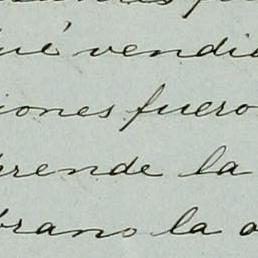 ué vendie
iones fuero
prende la
brano la a